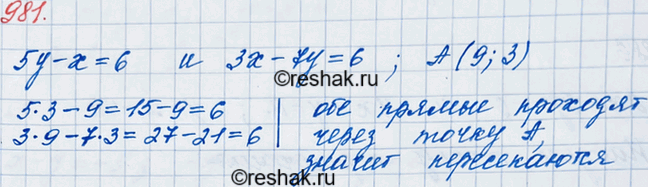 981.
5y-x=6 и 3x-7y=6; A(9;3)
5·3-9=15-9=6 | обе прямые проходят
3·9-7·3=27-21=6 | через точку A,
значит пересекаются
©reshak.ru